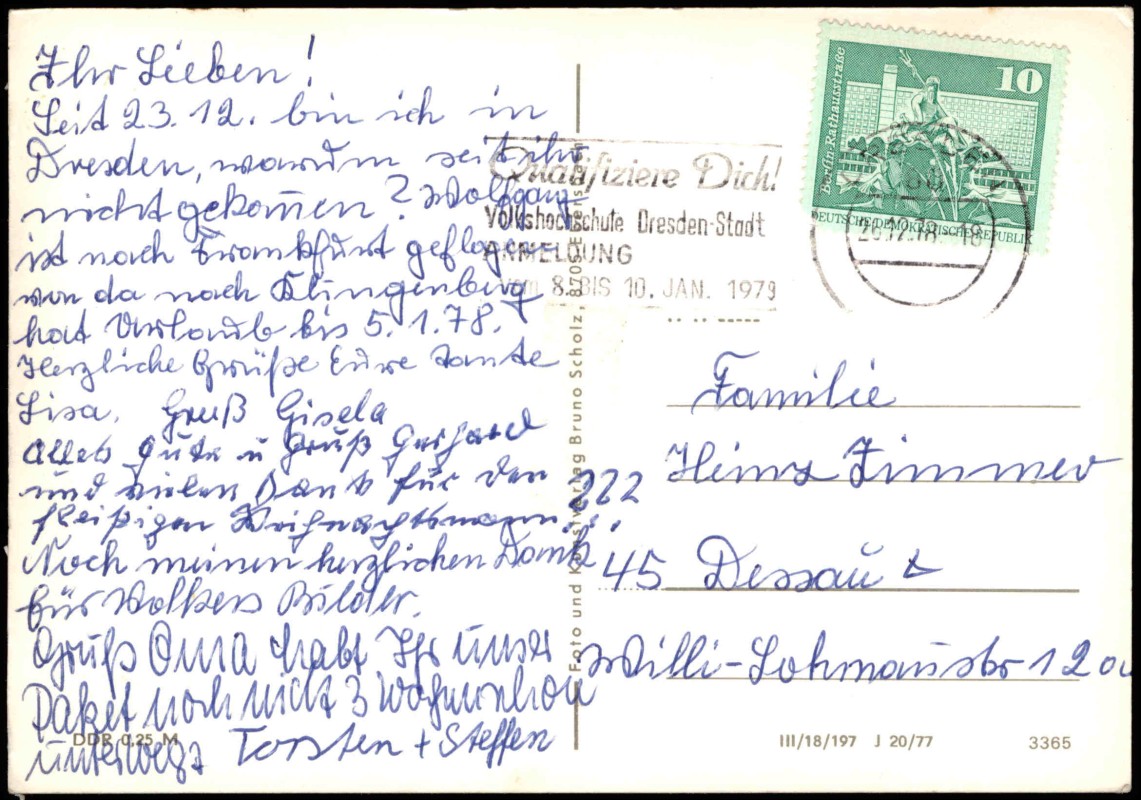 Ihr Lieben!
Seit 23.12. bin ich in
Dresden, warum seit ihr
nicht gekommen? Wolfgang
ist nach Frankfurt geflogen
von da nach Klingenberg
hat Urlaub bis 5.1.78.
Herzliche Grüße Eure Tante
Lisa. Gruß Gisela
Alles Gute u Gruß Gerhard
und vielen Dank für den
fleißigen Weihnachtsmann...
Noch meinen herzlichen Dank
für Volkers Bilder.
Gruß Oma habt Ihr unser
Paket noch nicht 3 Wochen schon
unterwegs Torsten + Steffen
DDR 0,25 M
Foto und Kunstverlag Bruno Scholz, 8705
10
Berlin Rathausstraße
DEUTSCHE DEMOKRATISCHE REPUBLIK
12.78.-18
Qualifiziere Dich!
Volkshochschule Dresden-Stadt
ANMELDUNG
vom 8. BIS 10. JAN. 1979
Familie
Heinz Zimmer
222
45 Dessau
Willi-Lohmannstr 12a
III/18/197 J 20/77
3365